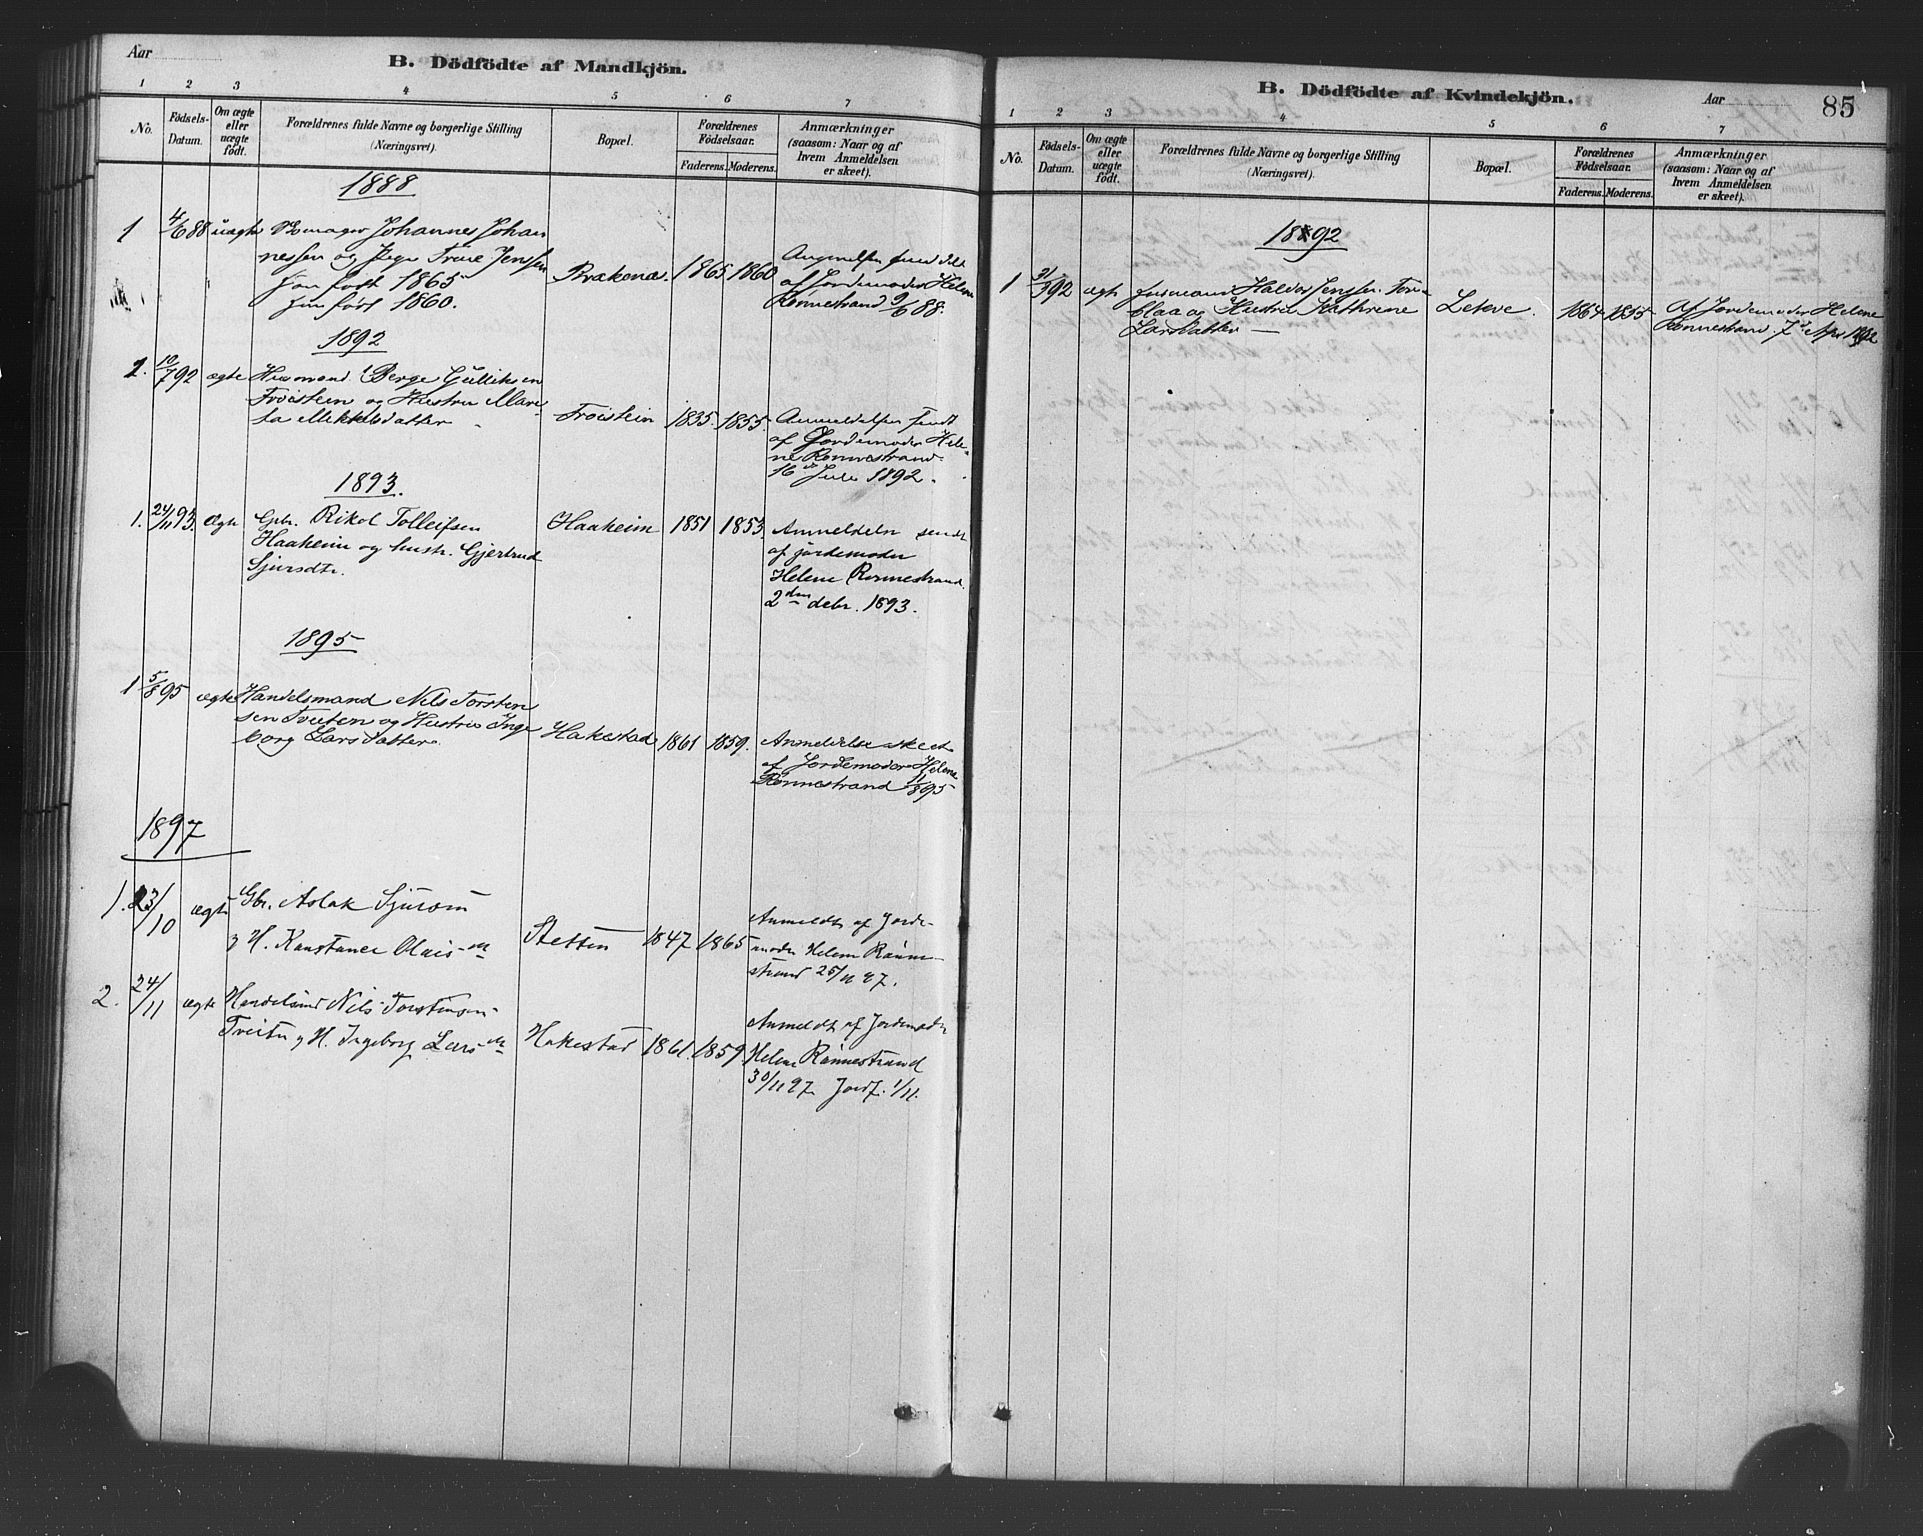 Aar
B. Dödfödte af Mandkjön.
1 2 3 4 5 6 7
No.
Födsels-
Datum.
Om ægte
eller
uægte
födt.
Forældrenes fulde Navne og borgerlige Stilling
(Næringsvei).
Bopæl.
Forældrenes
Födselsaar.
Faderens. Moderens.
Anmærkninger
(saasom: Naar og af
hvem Anmeldelsen
er skeet).
1888
1 4/6 88 uægte Johannes Johan
nessen og Pige Jenssen
født 1865
født 1860.
1865 1860
af Jordemoder Helene
Rønnestrand 9/6 88.
1892
1. 10/7 92 ægte Husmand Berge Gulliksen
Froistein og Hustru Mari
ta Mikkelsdatter
Froistein 1835. 1855
Anmeldelsen sendt
af Jordemoder Hele-
ne Rønnestrand
16 Juli 1892.
1893.
1. 24/11 93. Ægte Gbr. Rikol Tolleifsen
Haaheim og hustr. Gjertrud
Sjursdtr.
Haaheim 1851 1853.
Anmeldeln sendt
af jordemoder
Helene Rønnestrand
2den debr. 1893.
1895
1 5/8 95 ægte Handelsmand Nils Torsten
sen Tveiten og Hustru Inge
borg Larsdatter.
Hakestad 1861 1859.
Anmeldelse skeet
af Jordemoder Helene
Rønnestrand 11/8 95
1897
1. 23/10 ægte Gbr. Aslak Sjursen
H.
1847 1865
Anmeldt af Jorde-
moder Helene Rønne-
strand 25/11 97.
2. 24/11 ægte Handelsmd Nils Torstensen
Tveiten og H. Ingeborg Larsdtr
Hakestad 1861. 1859
Anmeldt af Jordemoder
Helene Rønnestrand
30/11 97. Jordf. 1/11.
B. Dödfödte af Kvindekjön.
Aar
85
1 2 3 4 5 6 7
No.
Födsels-
Datum.
Om ægte
eller
uægte
födt.
Forældrenes fulde Navne og borgerlige Stilling
(Næringsvei).
Bopæl.
Forældrenes
Födselsaar.
Faderens. Moderens.
Anmærkninger
(saasom: Naar og af
hvem Anmeldelsen
er skeet).
1892
1 31/3 92 ægte Haldor Jenssen
og Hustru Kathrine
Larsdatter
Lekve. 1864 1855
Af Jordemoder Helene
Rønnestrand 7de Apr 1892